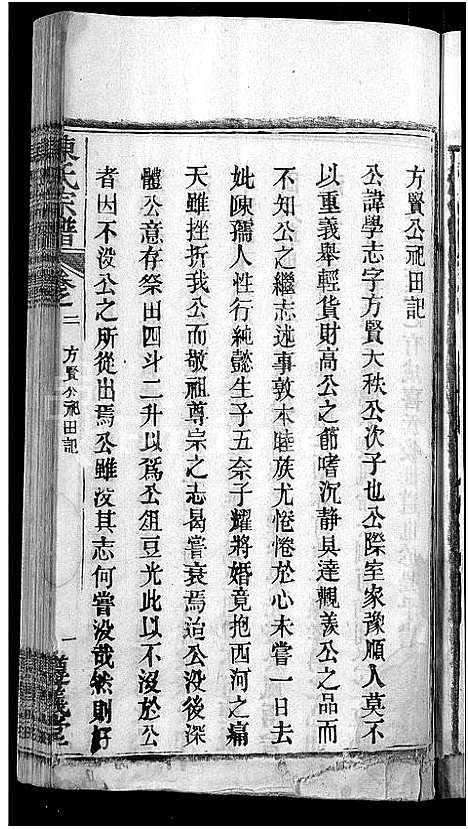 方賢公祀田記
公諱學志字方賢大秩公次子也公際室家豫順人莫不
以重義舉輕貨財高公之節嗜沉静具達觀羨公之品而
不知公之繼志述事敦本睦族尤惓惓於心未嘗一日去
妣陳孺人性行純懿生子五奈子耀將婚竟抱西河之痛
天雖挫折我公而敬祖尊宗之志曷嘗衰焉治公没後深
體公意存祭田四斗二升以爲公俎豆光此以不没於公
者因不没公之所從出焉公雖没其志何嘗没哉然則好
陳氏宗譜
卷之二
方賢公祀田記
一
義